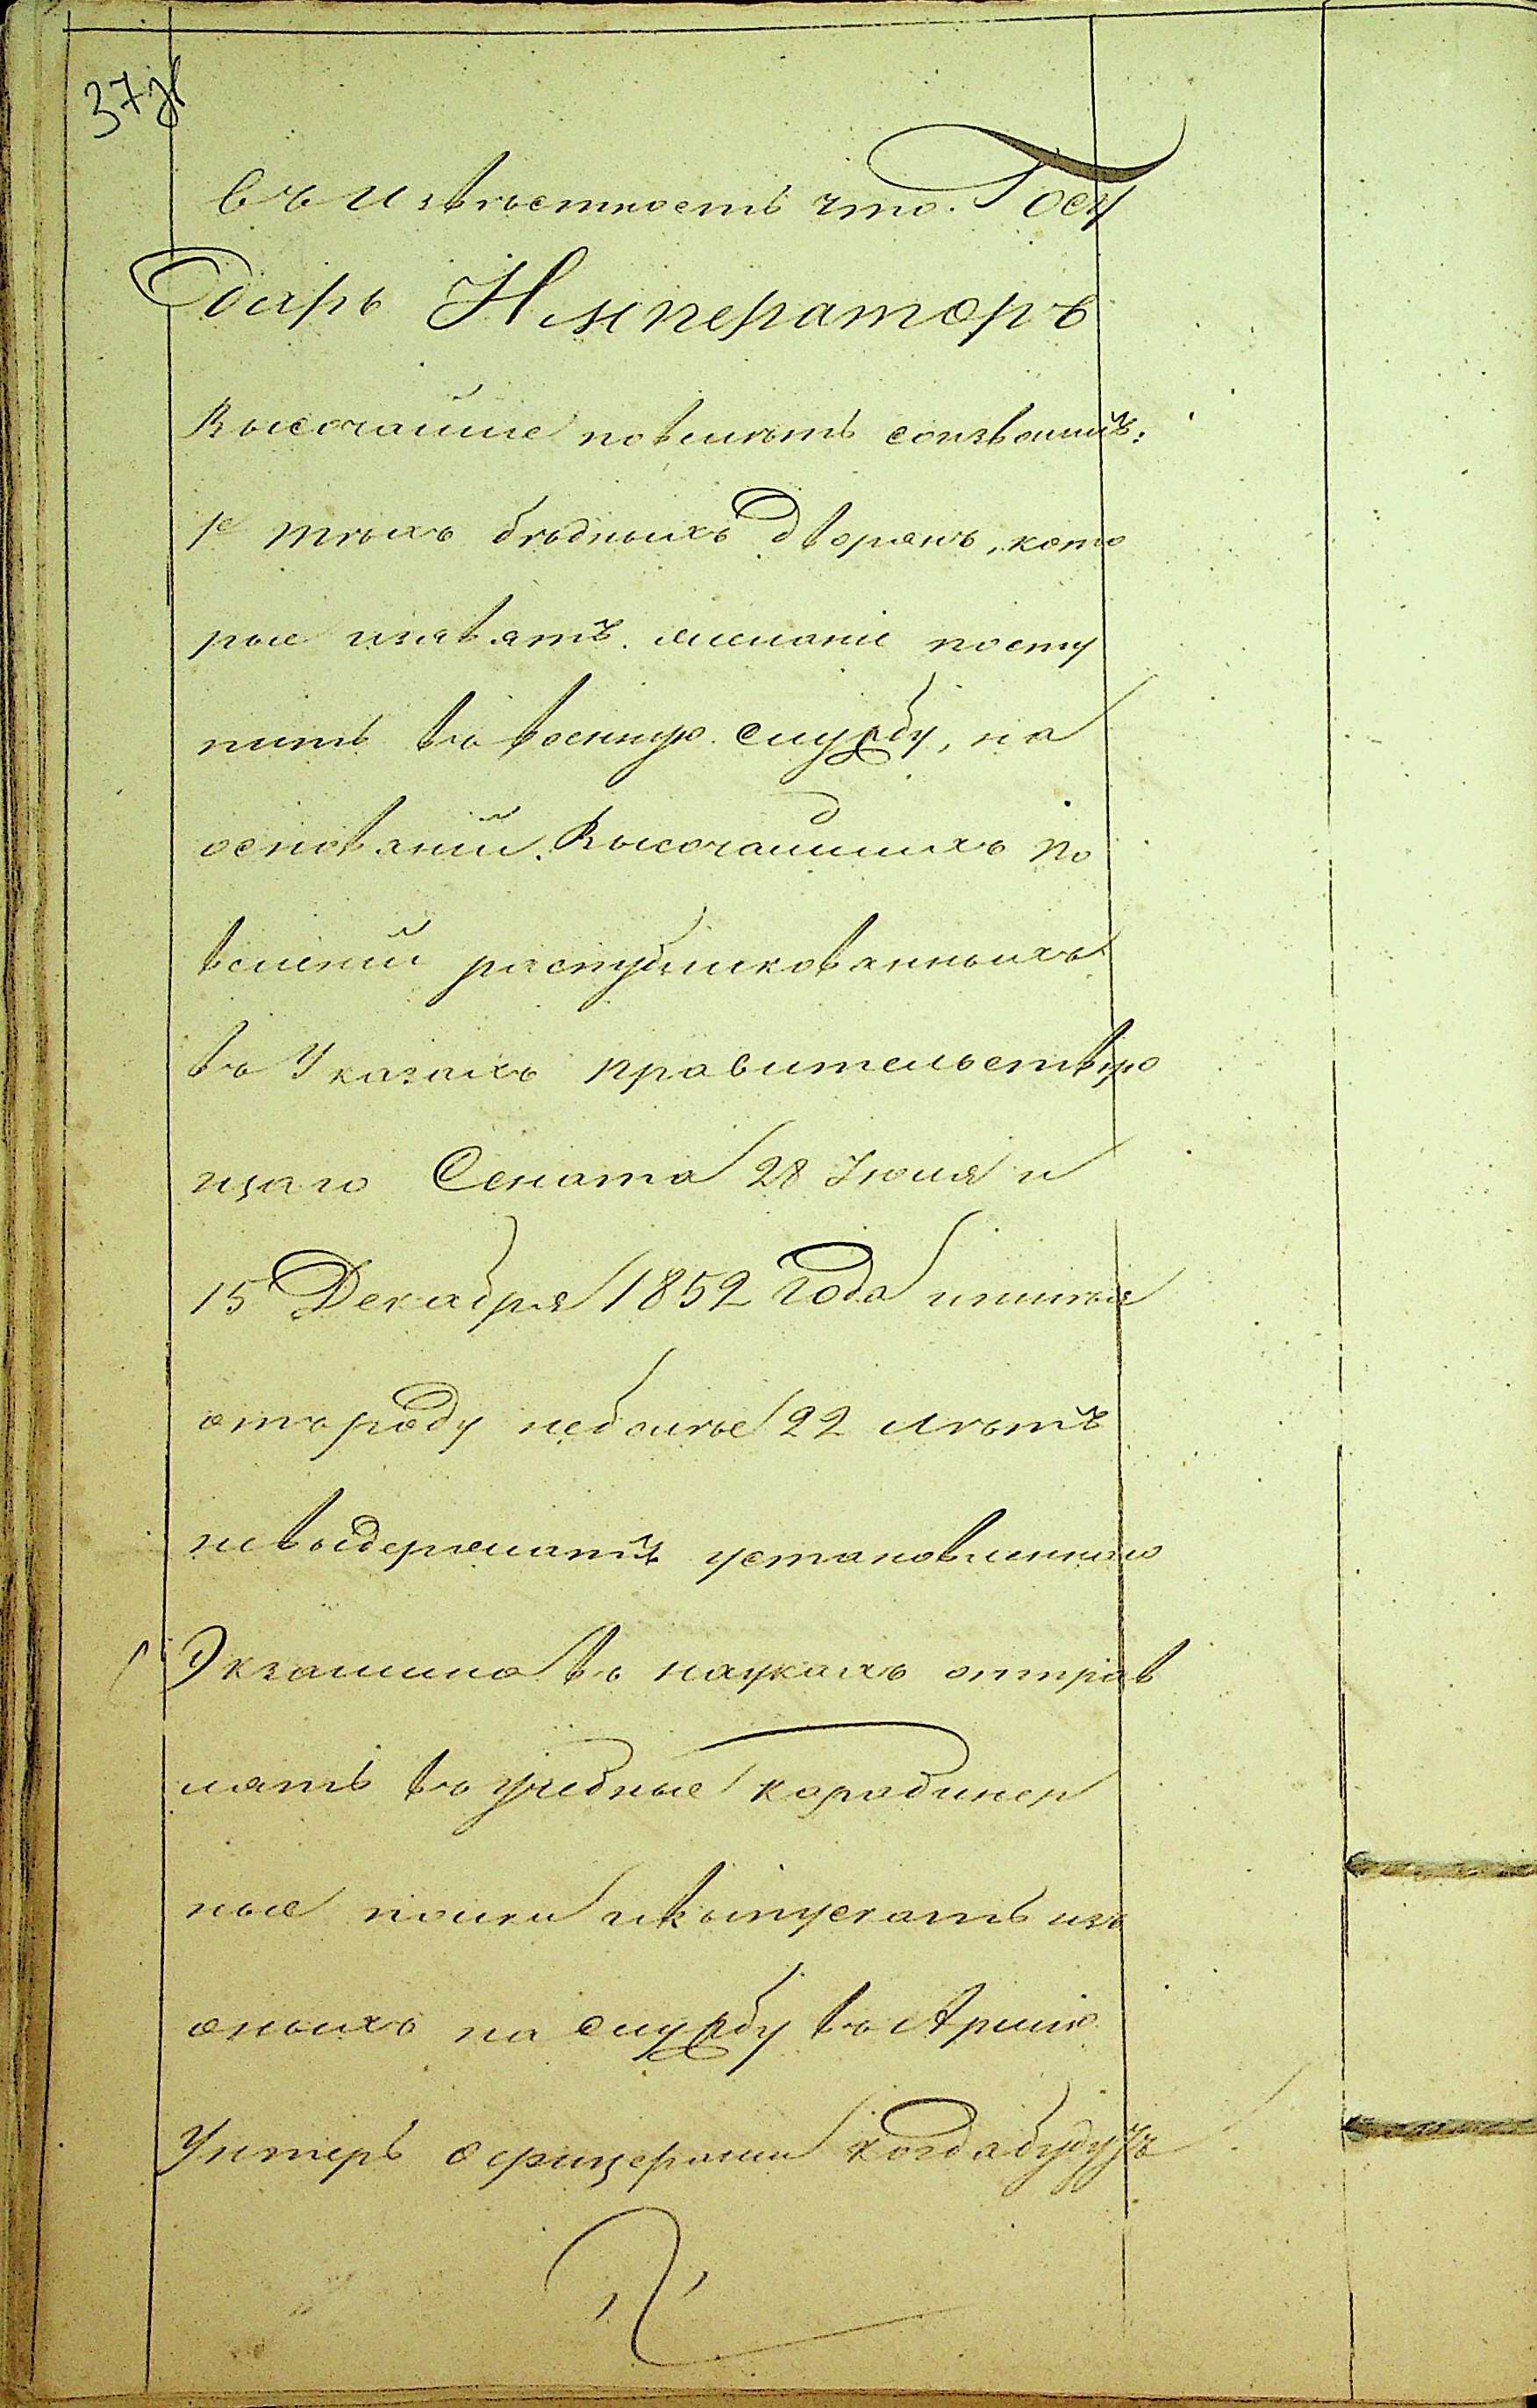 37 зв
въ Извѣстность что Госу
Дарь Императоръ
Высочайше повелѣть соизволилъ:
1е тѣхъ бѣдныхъ Дворянъ, кото
рые изъявятъ желаніе посту
пить въ военную службу, на
основаніи Высочайшихъ по
веленій распубликованныхъ
въ Указахъ правительствую
щаго Сената 28 Июля и
15 Декабря 1852 Года имѣя
отъ роду неболѣе 22 лѣтъ
невыдержатъ установленнаго
Экзамина въ наукахъ отправ
лять въ учебные карабинер
ные полки ивыпускать изъ
оныхъ на службу въ Армію
Унтеръ офицерами когда будутъ